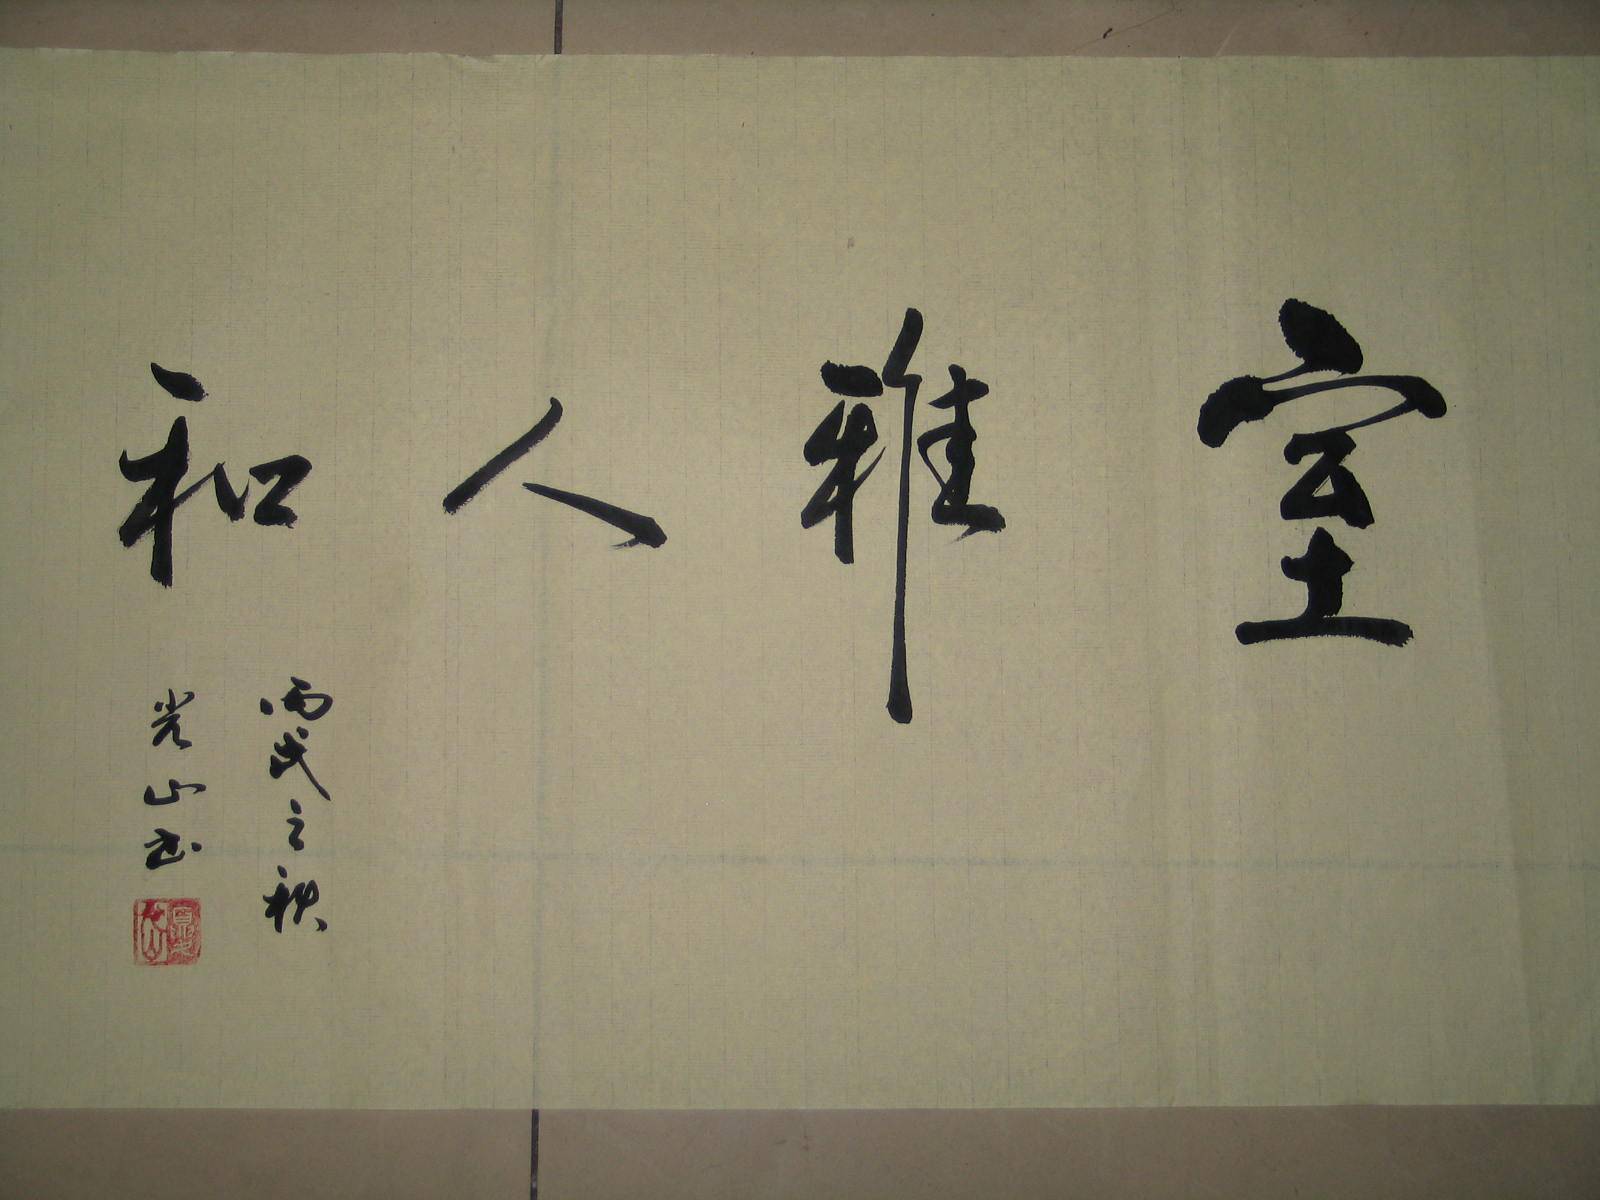 室雅人和
丙戌之秋
光山书